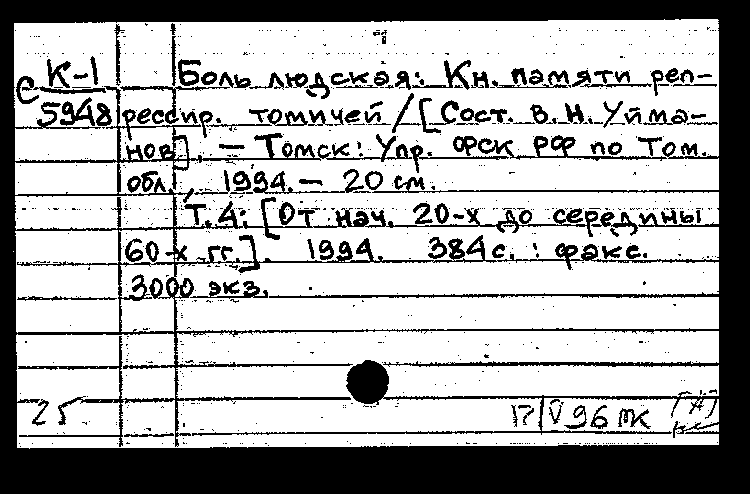 С К-1 Боль людская: Кн. памяти реп-
5948 рессир. томичей / [Сост. В. Н. Уйма-
нов]. — Томск: Упр. ФСК РФ по Том.
обл., 1994. — 20 см.
Т. 4: [От нач. 20-х до середины
60-х гг.]. 1994. 384 с. : факс.
3000 экз.
25 17/V 96